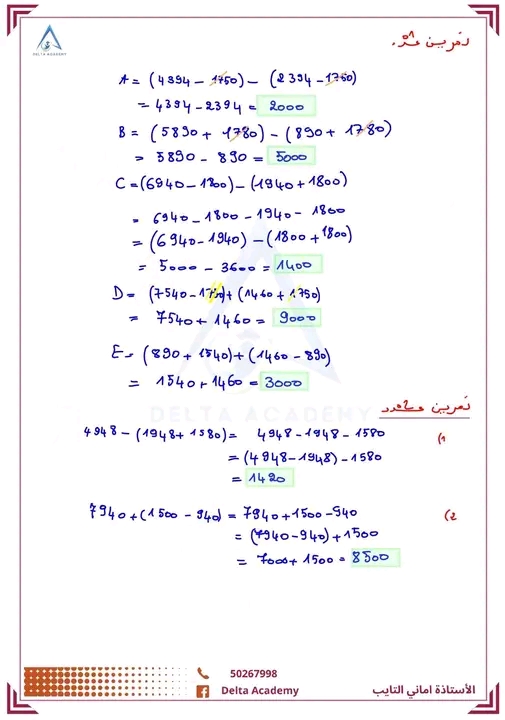 DELTA ACADEMY
تمرين عدد 1
A = (4394 - 1750) - (2394 - 1750)
= 4394 - 2394 = 2000
B = (5890 + 1780) - (890 + 1780)
= 5890 - 890 = 5000
C = (6940 - 1800) - (1940 + 1800)
= 6940 - 1800 - 1940 - 1800
= (6940 - 1940) - (1800 + 1800)
= 5000 - 3600 = 1400
D = (7540 - 1750) + (1460 + 1750)
= 7540 + 1460 = 9000
E = (890 + 1540) + (1460 - 890)
= 1540 + 1460 = 3000
DELTA ACADEMY
تمرين عدد 2
1) 4948 - (1948 + 1580) = 4948 - 1948 - 1580
= (4948 - 1948) - 1580
= 1420
2) 7940 + (1500 - 940) = 7940 + 1500 - 940
= (7940 - 940) + 1500
= 7000 + 1500 = 8500
50267998
Delta Academy
الأستاذة اماني التايب